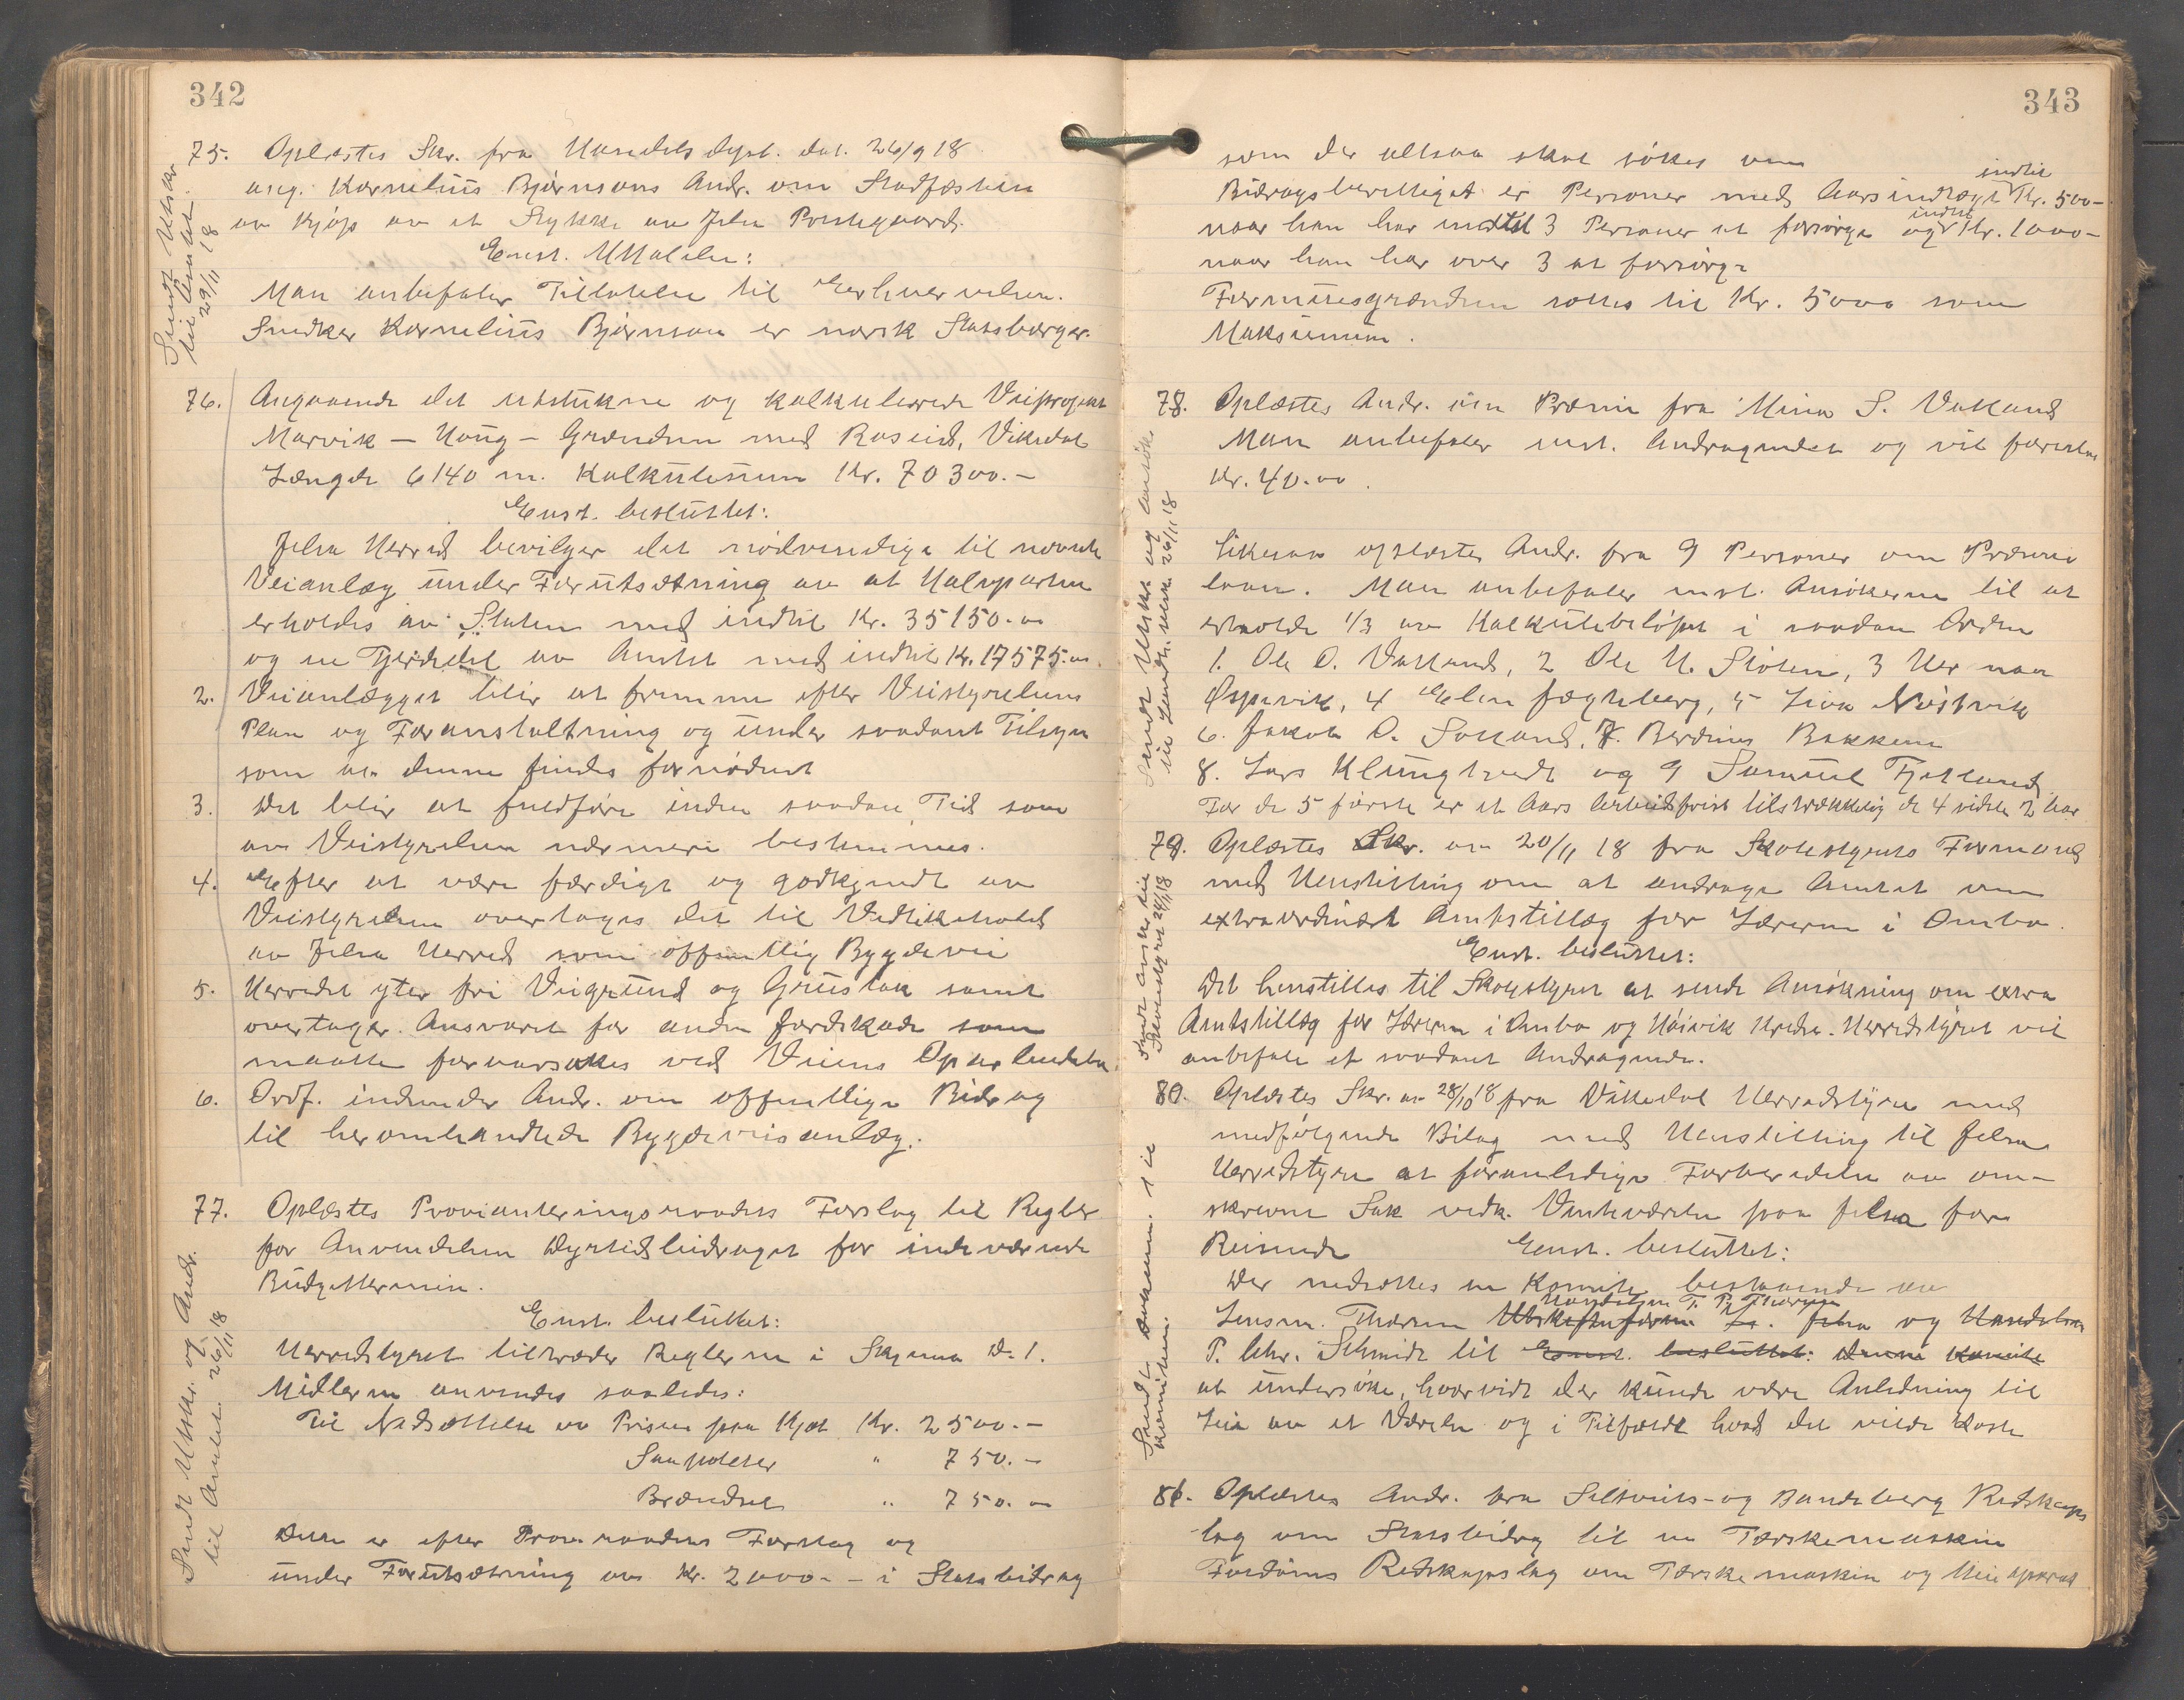 342
Sendt Utskr.
til Amtet
29/11 18
75. Oplæstes Skr. fra Handelsdept. dat. 26/9 18
ang. Kornelius Bjørnsons Andr. om Stadfæstelse
av Kjøp av et Stykke av Jelsa Prestegaard.
Enst. Uttalelse:
Man anbefaler Tillatelse til Erhvervelsen.
Snedker Kornelius Bjørnson er norsk Statsborger.
76. Angaaende det utstukne og kalkulerede Veiprojekt
Marvik – Haug – Grændsen med Roseid, Vikedal
Længde 6140 m. Kalkulesum Kr. 70300.–
Enst. besluttet:
Jelsa Herred bevilger det nødvendige til nævnte
Veianlæg under Forutsætning av at Halvparten
erholdes av Staten med indtil Kr. 35150.00
og en Fjerdedel av Amtet med indtil Kr. 17575.00.
2. Veianlægget blir at fremme efter Veistyrelsens
Plan og Foranstaltning og under saadant Tilsyn
som av denne findes fornødent
3. Det blir at fuldføre inden saadan Tid som
av Veistyrelsen nærmere bestemmes.
4. Efter at være færdigt og godkjendt av
Veistyrelsen overtages det til Vedlikehold
av Jelsa Herred som offentlig Bygdevei
5. Herredet yter fri Veigrund og Grustak samt
overtager Ansvaret for anden Jordskade som
maatte foraarsakes ved Veiens Oparbeidelse.
6. Ordf. indsender Andr. om offentlige Bidrag
til heromhandlede Bygdeveisanlæg.
Sendt Utskr. og Andr.
til Amtet 26/11 18
77. Oplæstes Provianteringsraadets Forslag til Regler
for Anvendelsen Dyrtidsbidraget for indeværende
Budgettermin.
Enst. besluttet:
Herredstyret tiltræder Reglerne i Skjema D. 1.
Midlerne anvendes saaledes:
Til Nedsættelse av Prisen paa Kjøt Kr. 2500.–
Saapoteter " 750.–
Brændsel " 750.00
Dette er efter Prov. raadets Forslag og
under Forutsætning av Kr. 2000.– i Statsbidrag
343
som der altsaa skal søkes om
Bidragsberettiget er Personer med Aarsindtægt indtil Kr. 500–
naar han har indtil 3 Personer at forsørge og indtil Kr. 1000–
naar han har over 3 at forsørge
Formuesgrændsen sættes til Kr. 5000 som
Maksimum.
Sendt Utskr. og Ansøk.
til Landbr. selsk. 26/11 18
78. Oplæstes Andr. om Præmie fra Mina S. Vatland
Man anbefaler enst. Andragendet og vil foreslaa
Kr. 40.00.
Likesaa oplæstes Andr. fra 9 Personer om Præmie
laan. Man anbefaler enst. Ansøkerne til at
erholde 1/3 av Kalkulebeløpet i saadan Orden
1. Ole O. Vatland, 2 Ole H. Sloten, 3 Her man
Espevik, 4 Elen Fægteberg, 5 Liva Nøstvik
6. Jakob O. Sotland, 7. Berdines Bakken
8. Lars Klungtvedt og 9 Samuel Tjetland
For de 5 første er et Aars Arbeidsfrist tilstrækkelig de 4 sidste 2 Aar
Sendt avskr. til
Skolestyret 24/11 18
79. Oplæstes Skr. av 20/11 18 fra Skolestyrets Formand
med Henstilling om at andrage Amtet om
extraordinært Amtstillæg for Læreren i Ombo.
Enst. besluttet:
Det henstilles til Skolestyret at sende Ansøkning om extra
Amtstillæg for Læreren i Ombo og Høivik Kreds. Herredstyret vil
anbefale et saadant Andragende.
Sendt Oversen. til
Komiteen.
80. Oplæstes Skr. av 28/10 18 fra Vikedal Herredstyre med
medfølgende Bilag med Henstilling til Jelsa
Herredstyre at foranledige Forberedelse av om-
skrevne Sak vedk. Venteværelse paa Jelsa for
Reisende Enst. besluttet:
Der nedsættes en Komite bestaaende av
Handelsm. T. P. Thorsen
Lensm. Thorsen og Handelsm
P. Chr. Schmidt til Enst. besluttet: Denne Komite
at undersøke, hvorvidt der kunde være Anledning til
Leie av et Værelse og i Tilfælde hvad det vilde koste
81. Oplæstes Andr. fra Selsvits- og Bandeberg Redskaps
lag om Statsbidrag til en Tærskemaskin
Foröens Redskapslag om Tærskemaskin og Meieaparat